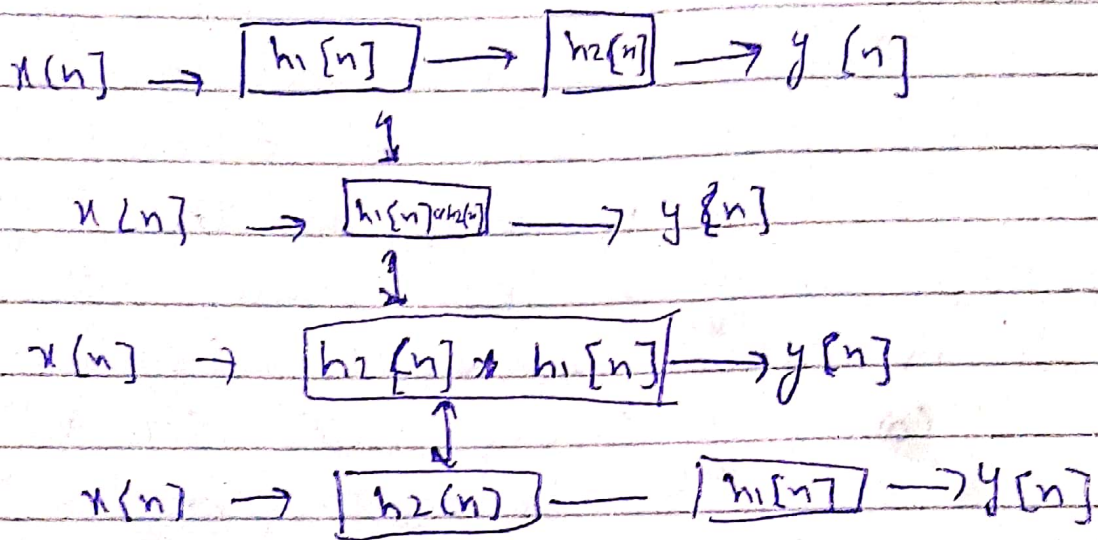 x[n] → h1[n] → h2[n] → y[n]
x[n] → h1[n]*h2[n] → y[n]
x[n] → h2[n] * h1[n] → y[n]
x[n] → h2[n] — h1[n] → y[n]